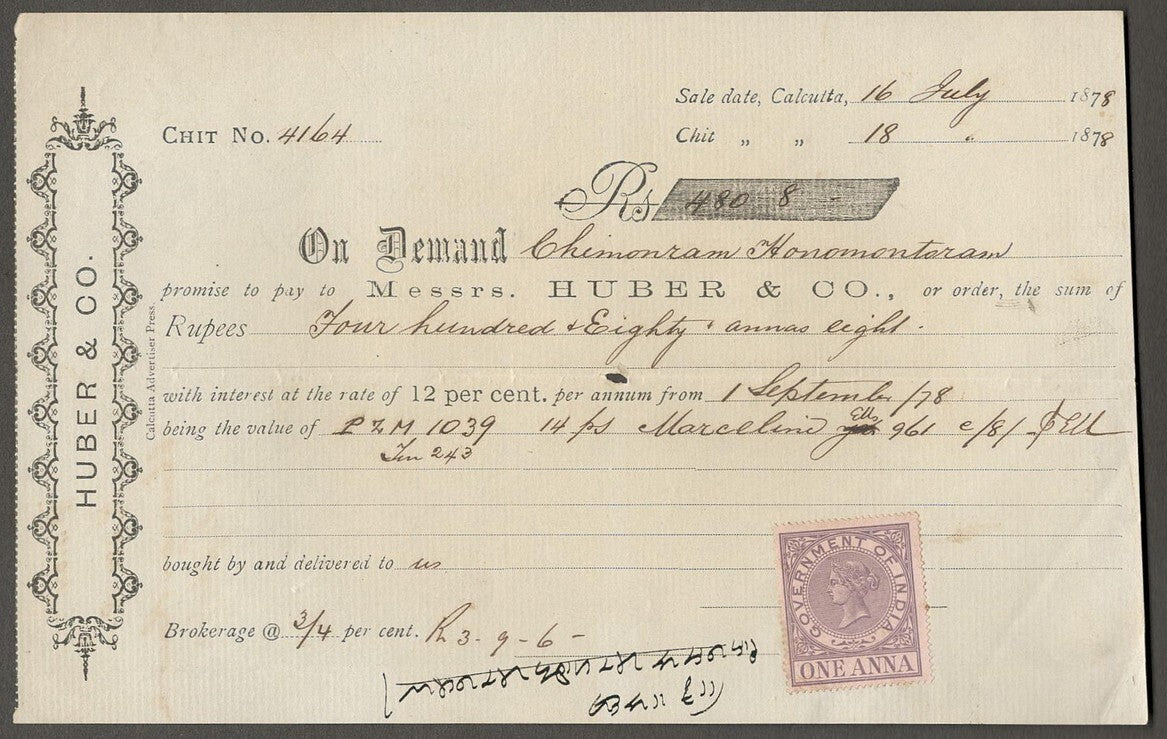 HUBER & CO.
Calcutta Advertiser Press
Sale date, Calcutta, 16 July 1878
CHIT No. 4164
Chit „ „ 18 „ 1878
Rs 480 8 -
On Demand Chimonram Honomontoram
promise to pay to Messrs. HUBER & CO., or order, the sum of
Rupees Four hundred & Eighty & annas eight.
with interest at the rate of 12 per cent. per annum from 1 September /78
being the value of P Z M 1039 14 ps Marceline Ells 961 c/8/ Ell
243
bought by and delivered to us
Brokerage @ 3/4 per cent. R 3-9-6-
GOVERNMENT OF INDIA
ONE ANNA